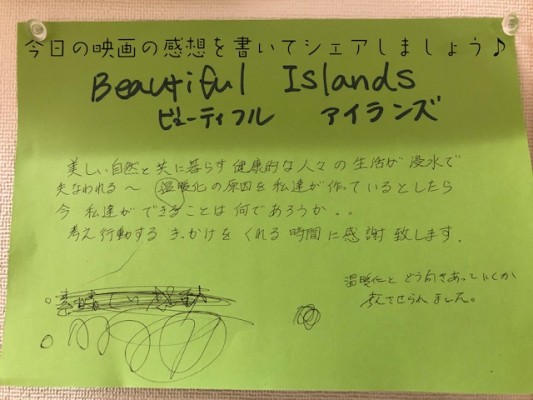 今日の映画の感想を書いてシェアしましょう♪
Beautiful Islands
ビューティフル アイランズ
美しい自然と共に暮らす健康的な人々の生活が浸水で
失なわれる〜 温暖化の原因を私達が作っているとしたら
今 私達ができることは何であろうか..
考え行動するきっかけをくれる時間に感謝致します.
温暖化とどう向きあっていくか
考えさせられました。